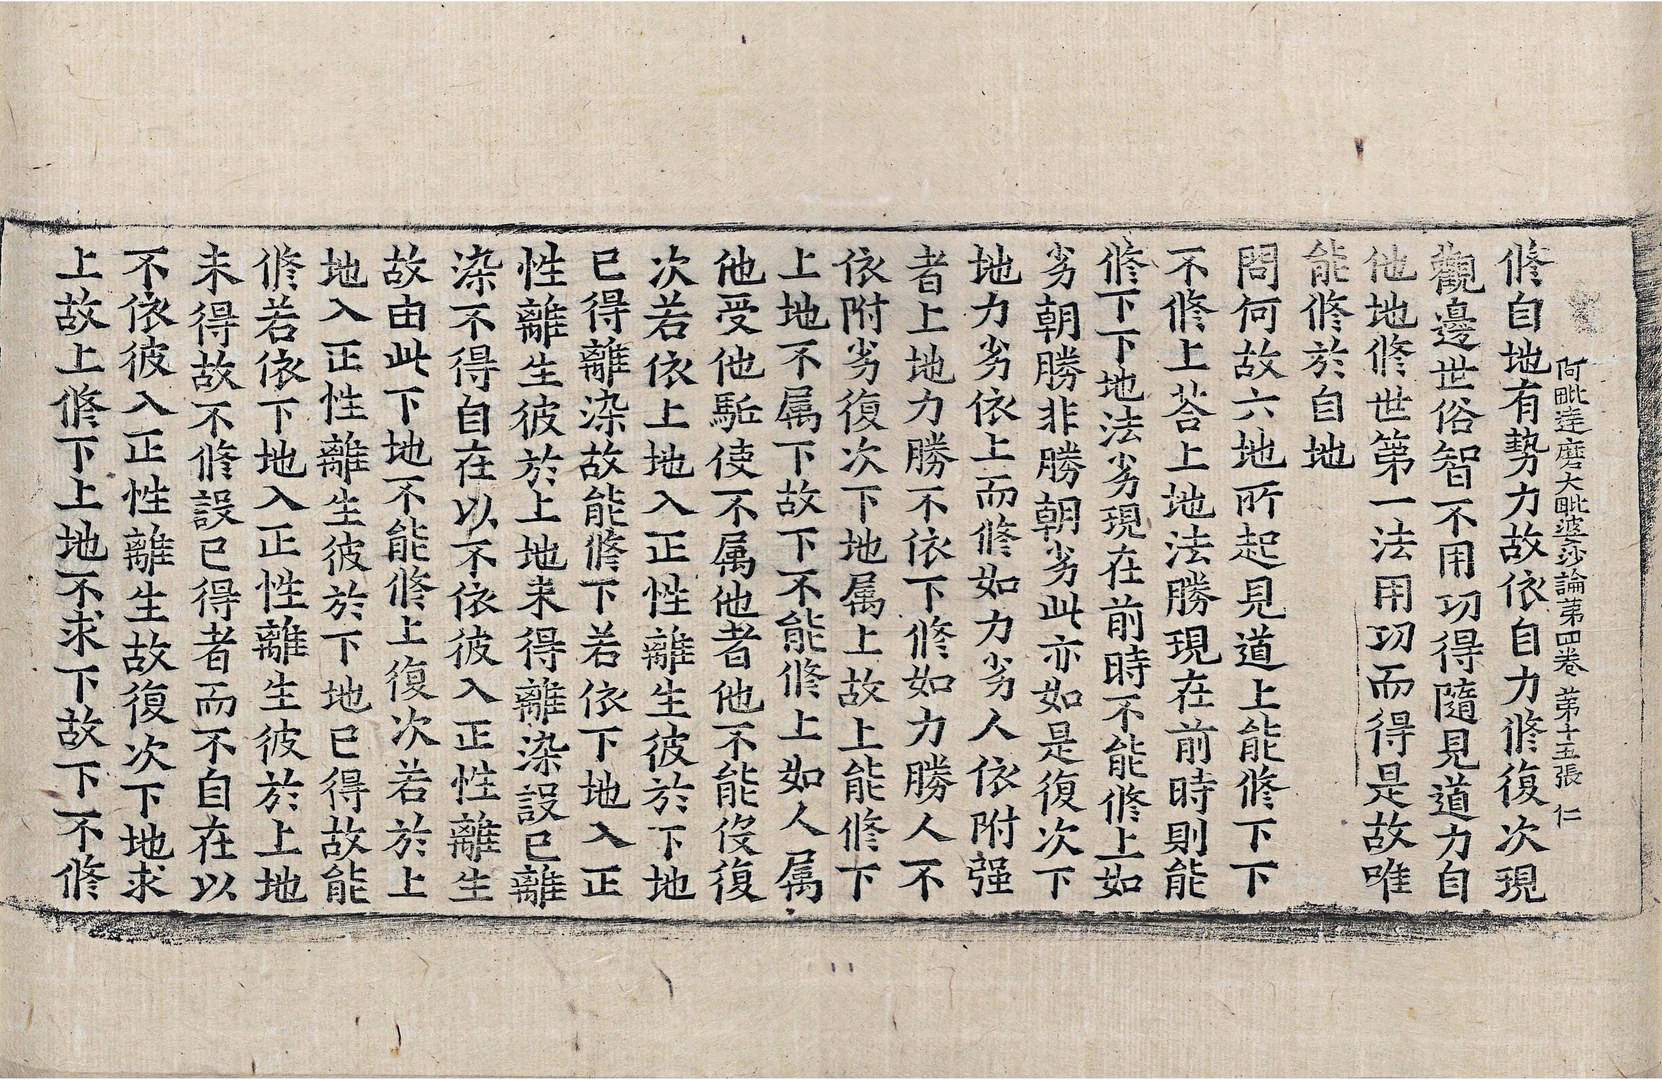 阿毗達磨大毗婆沙論第四卷 第十五張 仁
修自地有勢力故依自力修復次現
觀邊世俗智不用功得隨見道力自
他地修世第一法用功而得是故唯
能修於自地
問何故六地所起見道上能修下下
不修上荅上地法勝現在前時則能
修下下地法劣現在前時不能修上如
劣朝勝非勝朝劣此亦如是復次下
地力劣依上而修如力劣人依附强
者上地力勝不依下修如力勝人不
依附劣復次下地属上故上能修下
上地不属下故下不能修上如人属
他受他駈使不属他者他不能伇復
次若依上地入正性離生彼於下地
已得離染故能修下若依下地入正
性離生彼於上地未得離染設已離
染不得自在以不依彼入正性離生
故由此下地不能修上復次若於上
地入正性離生彼於下地已得故能
修若依下地入正性離生彼於上地
未得故不修設已得者而不自在以
不依彼入正性離生故復次下地求
上故上修下上地不求下故下不修